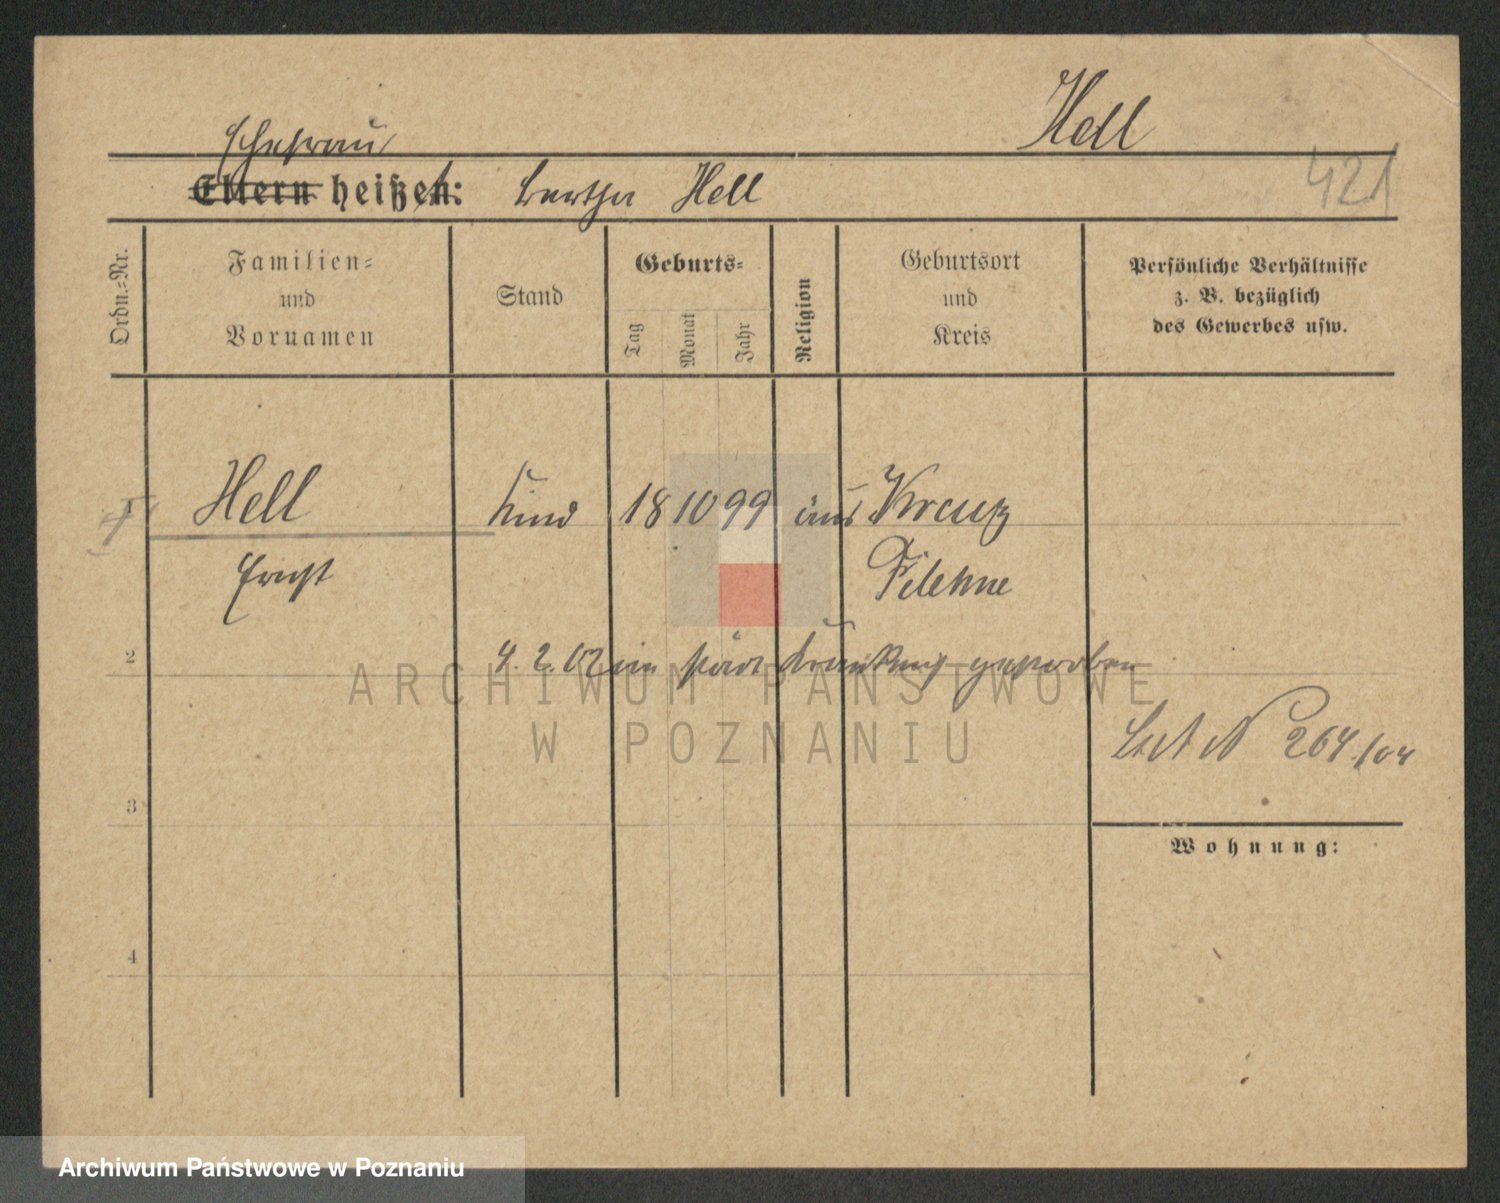 Hell
Ehefrau
Eltern heißen: Bertha Hell
421
Ordn.=Nr.
Familien=
und
Vornamen
Stand
Geburts=
Tag
Monat
Jahr
Religion
Geburtsort
und
Kreis
Persönliche Verhältnisse
z. B. bezüglich
des Gewerbes usw.
1 Hell Kind 18 10 99 Kreuz
Ernst Filehne
2
4. 2. 02 im städt Krankenhs gestorben
ARCHIWUM PAŃSTWOWE
W POZNANIU
N 264./04
3
Wohnung:
4
Archiwum Państwowe w Poznaniu